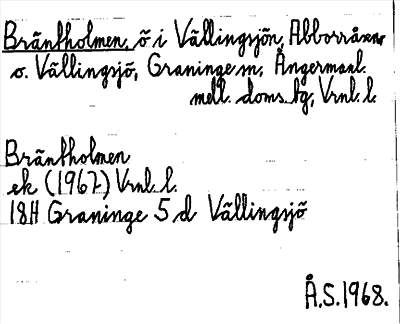 Bräntholmen, ö i Vällingsjön, Abborråsen
o. Vällingsjö, Graninge sn, Ångermanl.
mell. doms tg, Vrnl. l.
Bräntholmen
ek (1967) Vrnl. l.
18H Graninge 5 d Vällingsjö
Å.S. 1968.